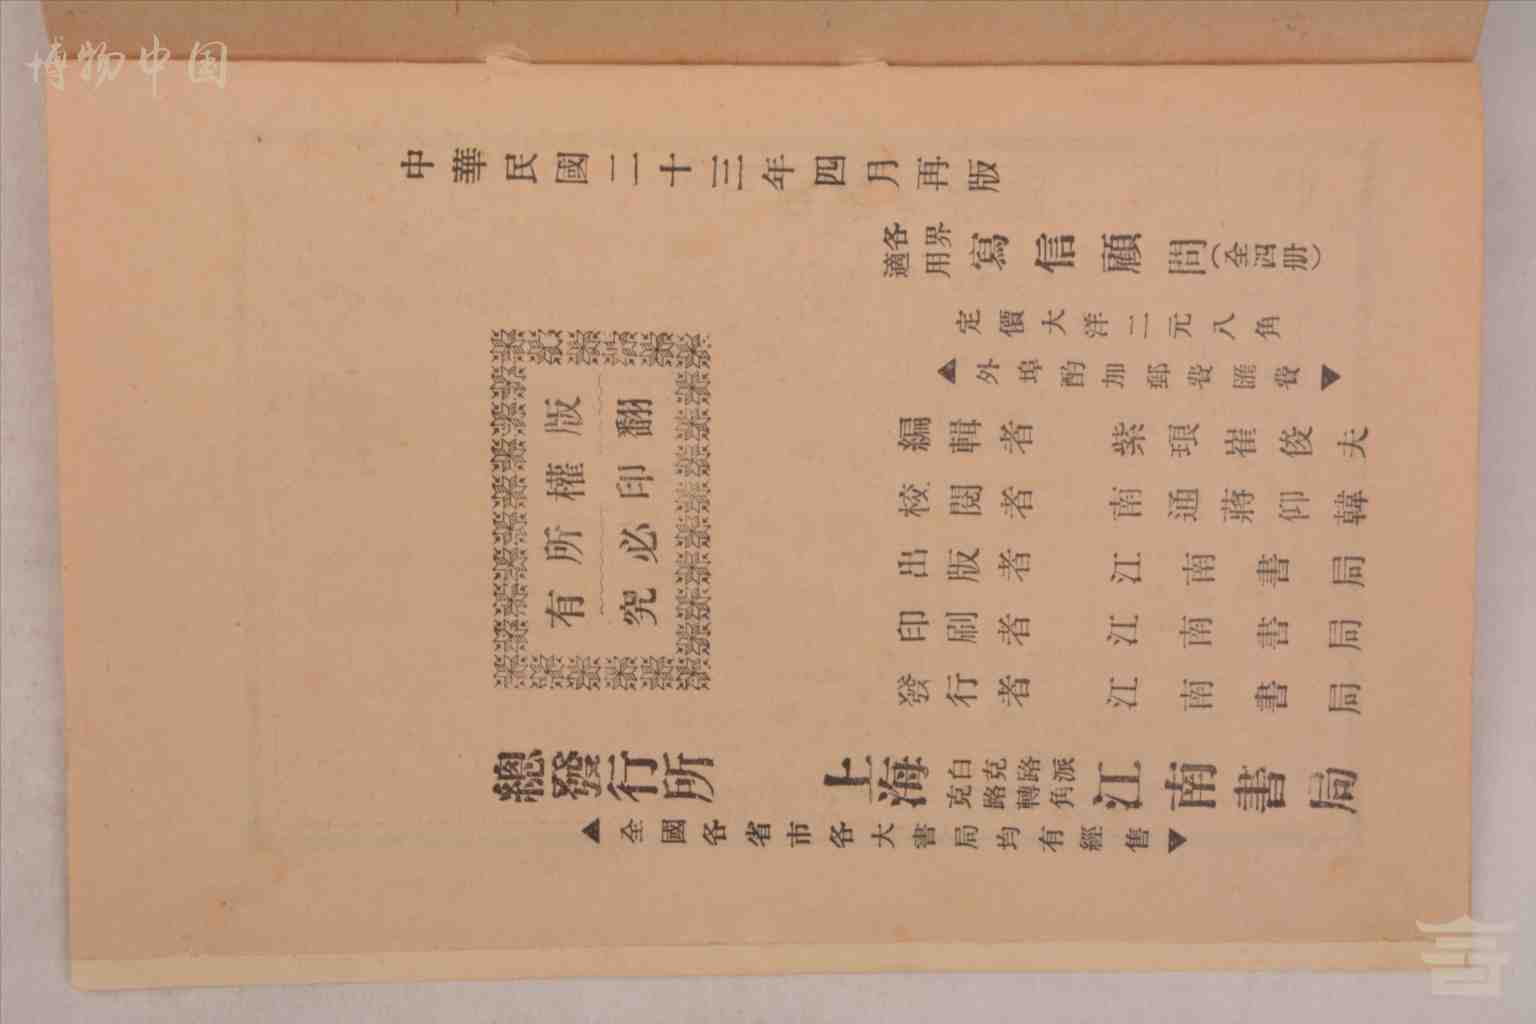 博物中国
中華民國二十三年四月再版
各界適用 寫信顧問（全四册）
定價大洋二元八角
▲外埠酌加郵費匯費▼
編輯者 紫琅崔俊夫
校閱者 南通蔣仰韓
出版者 江南書局
印刷者 江南書局
發行者 江南書局
有所權版
究必印翻
總發行所 上海白克路克路轉派角 江南書局
▲全國各省市各大書局均有經售▼